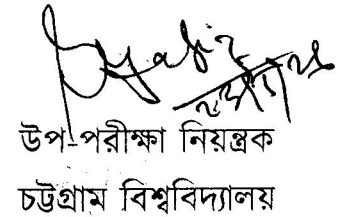 উপ-পরীক্ষা নিয়ন্ত্রক
চট্টগ্রাম বিশ্ববিদ্যালয়